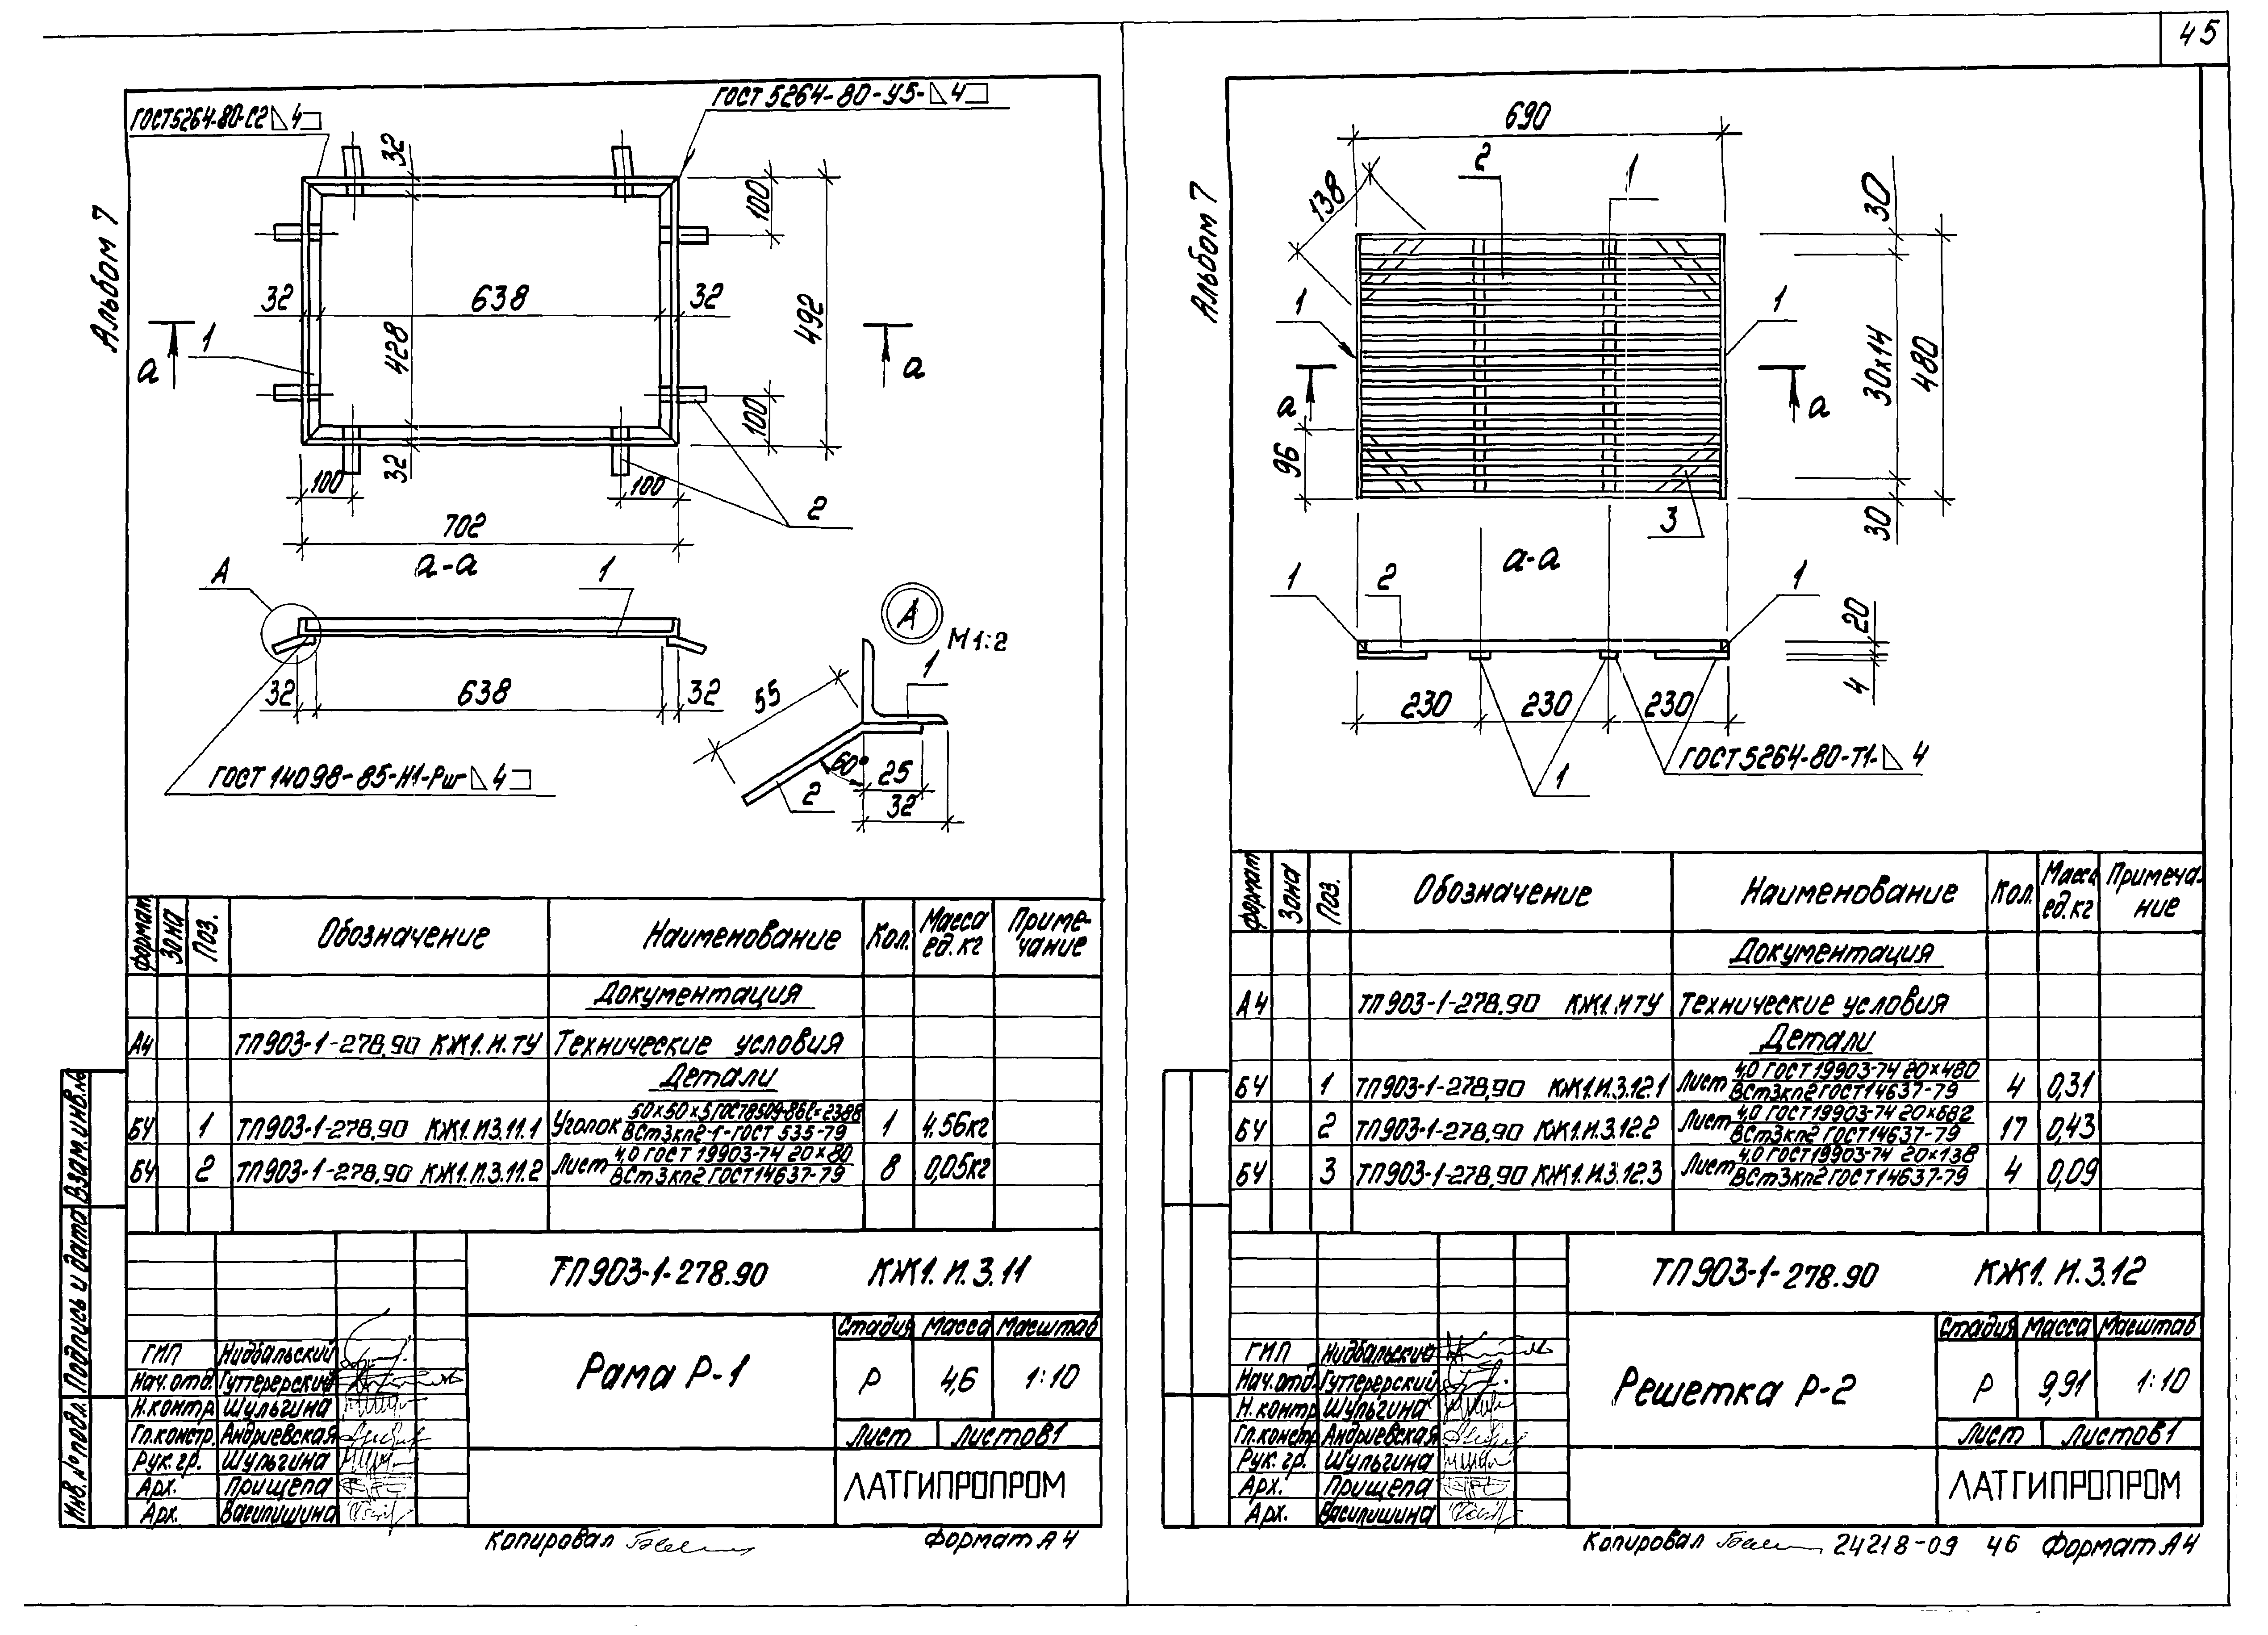 45
Альбом 7
ГОСТ 5264-80-С2 4
ГОСТ 5264-80-У5- 4
32
100
32
638
32
492
428
1
а
а
100
32
100
100
2
702
а-а
А
1
А
М 1:2
1
55
32
638
32
60°
25
2
32
ГОСТ 14098-85-Н1-Рш- 4
формат Зона Поз. Обозначение Наименование Кол. Масса ед. кг Приме-чание
Документация
А4 ТП903-1-278.90 КЖ1.И.ТУ Технические условия
Детали
БЧ 1 ТП903-1-278.90 КЖ1.И.3.11.1 Уголок 50×50×5 ГОСТ 8509-86 ℓ=2388 1 4.56кг
ВСт3кп2-1-ГОСТ 535-79
БЧ 2 ТП903-1-278.90 КЖ1.И.3.11.2 Лист 4,0 ГОСТ 19903-74 20×80 8 0,05кг
ВСт3кп2 ГОСТ 14637-79
ТП903-1-278.90 КЖ1.И.3.11
Рама Р-1
Стадия Масса Масштаб
Р 4,6 1:10
Лист Листов 1
ЛАТГИПРОПРОМ
ГИП Нидбальский
Нач.отд. Гуттерерский
Н.контр Шульгина
Гл.констр. Андриевская
Рук.гр. Шульгина
Арх. Прищепа
Арх. Василишина
Инв.№ подл. Подпись и дата Взам.инв.№
Копировал
Формат А4
Альбом 7
690
138
2
1
30
1
1
30×14
480
а
а
96
3
30
а-а
1
2
1
20
4
230
230
230
1
ГОСТ 5264-80-Т1- 4
формат Зона Поз. Обозначение Наименование Кол. Масса ед. кг Примеча-ние
Документация
А4 ТП903-1-278.90 КЖ1.ИТУ Технические условия
Детали
БЧ 1 ТП903-1-278.90 КЖ1.И.3.12.1 Лист 4,0 ГОСТ 19903-74 20×480 4 0,31
ВСт3кп2 ГОСТ 14637-79
БЧ 2 ТП903-1-278.90 КЖ1.И.3.12.2 Лист 4,0 ГОСТ 19903-74 20×682 17 0,43
ВСт3кп2 ГОСТ 14637-79
БЧ 3 ТП903-1-278.90 КЖ1.И.3.12.3 Лист 4,0 ГОСТ 19903-74 20×138 4 0,09
ВСт3кп2 ГОСТ 14637-79
ТП903-1-278.90 КЖ1.И.3.12
Решетка Р-2
Стадия Масса Масштаб
Р 9,91 1:10
Лист Листов 1
ЛАТГИПРОПРОМ
ГИП Нидбальский
Нач.отд. Гуттерерский
Н.контр Шульгина
Гл.констр Андриевская
Рук.гр. Шульгина
Арх. Прищепа
Арх. Василишина
Копировал
24218-09 46 Формат А4